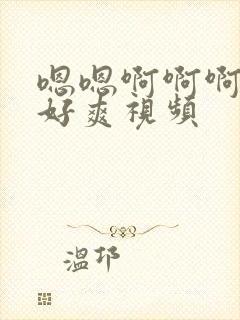 嗯嗯啊啊啊
好爽視頻
溫邗